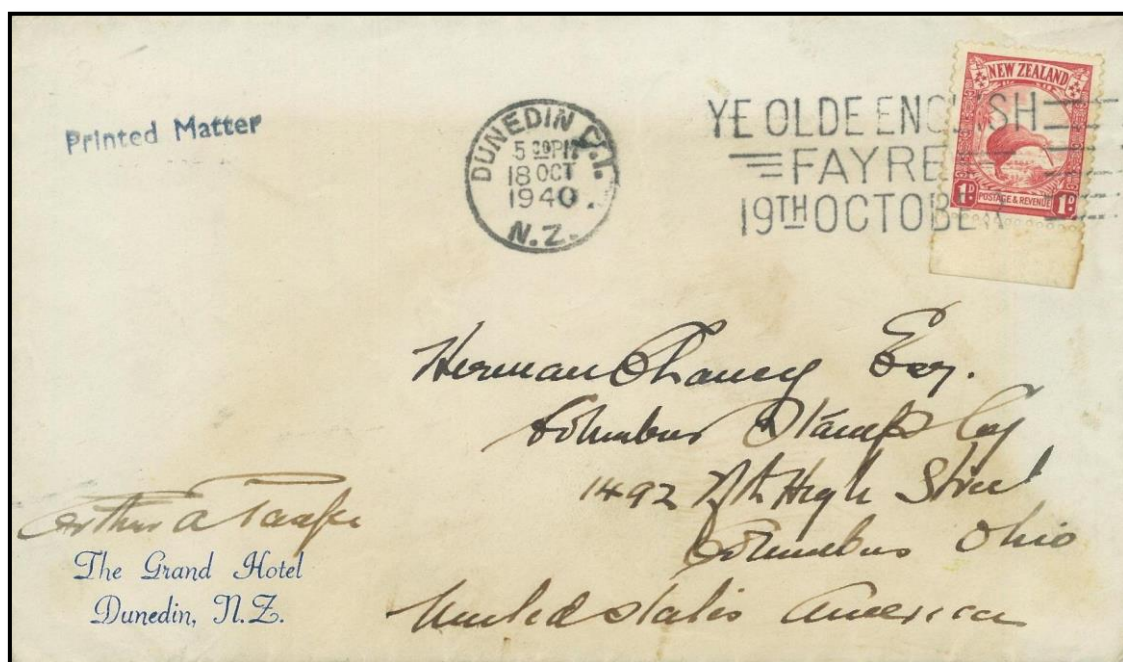 Printed Matter
DUNEDIN C.I.
5 30PM
18 OCT
1940
N.Z.
YE OLDE ENGLISH
FAYRE
19TH OCTOBER
NEW ZEALAND
1D POSTAGE & REVENUE 1D
Herman Chaney Esq.
Columbus Stamp Coy
1492 Nth High Street
Columbus Ohio
United States America
Arthur A
The Grand Hotel
Dunedin, N.Z.